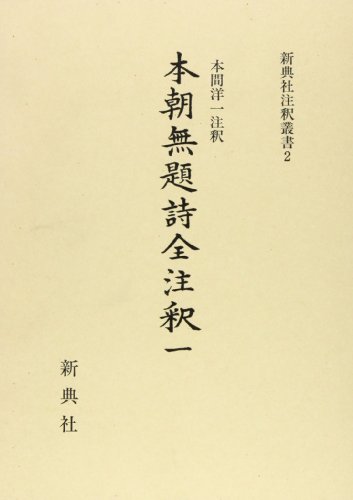 新典社注釈叢書2
本間洋一注釈
本朝無題詩全注釈一
新典社